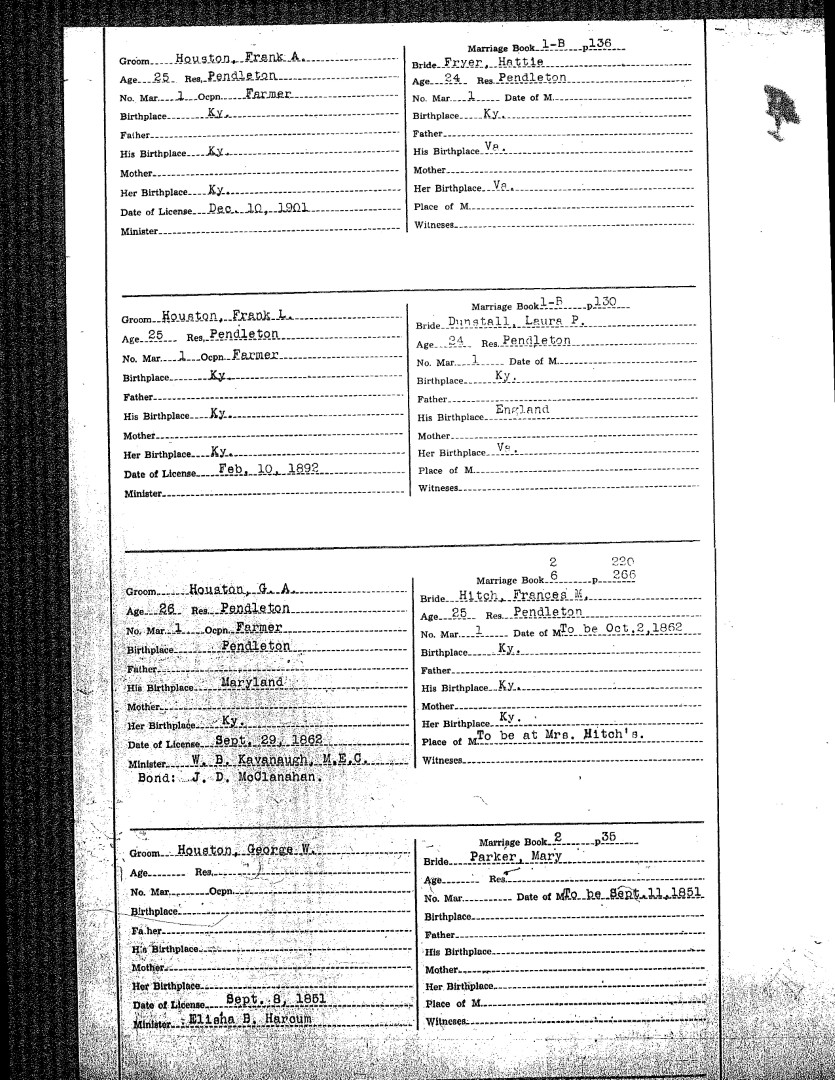 Groom Houston, Frank A.
Age 25 Res. Pendleton
No. Mar. 1 Ocpn. Farmer
Birthplace Ky.
Father
His Birthplace Ky.
Mother
Her Birthplace Ky.
Date of License Dec. 10, 1901
Minister
Marriage Book 1-B p 136
Bride Fryer, Hattie
Age 24 Res. Pendleton
No. Mar. 1 Date of M.
Birthplace Ky.
Father
His Birthplace Va.
Mother
Her Birthplace Va.
Place of M.
Witnesses
Groom Houston, Frank L.
Age 25 Res. Pendleton
No. Mar. 1 Ocpn. Farmer
Birthplace Ky.
Father
His Birthplace Ky.
Mother
Her Birthplace Ky.
Date of License Feb. 10, 1892
Minister
Marriage Book 1-B p 130
Bride Dunstall, Laura P.
Age 24 Res. Pendleton
No. Mar. 1 Date of M.
Birthplace Ky.
Father
His Birthplace England
Mother
Her Birthplace Va.
Place of M.
Witnesses
Groom Houston, G. A.
Age 26 Res. Pendleton
No. Mar. 1 Ocpn. Farmer
Birthplace Pendleton
Father
His Birthplace Maryland
Mother
Her Birthplace Ky.
Date of License Sept. 29, 1862
Minister W. B. Kavanaugh, M.E.C.
Bond: J. D. McClanahan.
2 220
Marriage Book 6 p 266
Bride Hitch, Frances M.
Age 25 Res. Pendleton
No. Mar. 1 Date of M. To be Oct. 2, 1862
Birthplace Ky.
Father
His Birthplace Ky.
Mother
Her Birthplace Ky.
Place of M. To be at Mrs. Hitch's.
Witnesses
Groom Houston, George W.
Age Res.
No. Mar. Ocpn.
Birthplace
Father
His Birthplace
Mother
Her Birthplace
Date of License Sept. 8, 1851
Minister Elisha B. Harcum
Marriage Book 2 p 35
Bride Parker, Mary
Age Res.
No. Mar. Date of M. To be Sept. 11, 1851
Birthplace
Father
His Birthplace
Mother
Her Birthplace
Place of M.
Witnesses